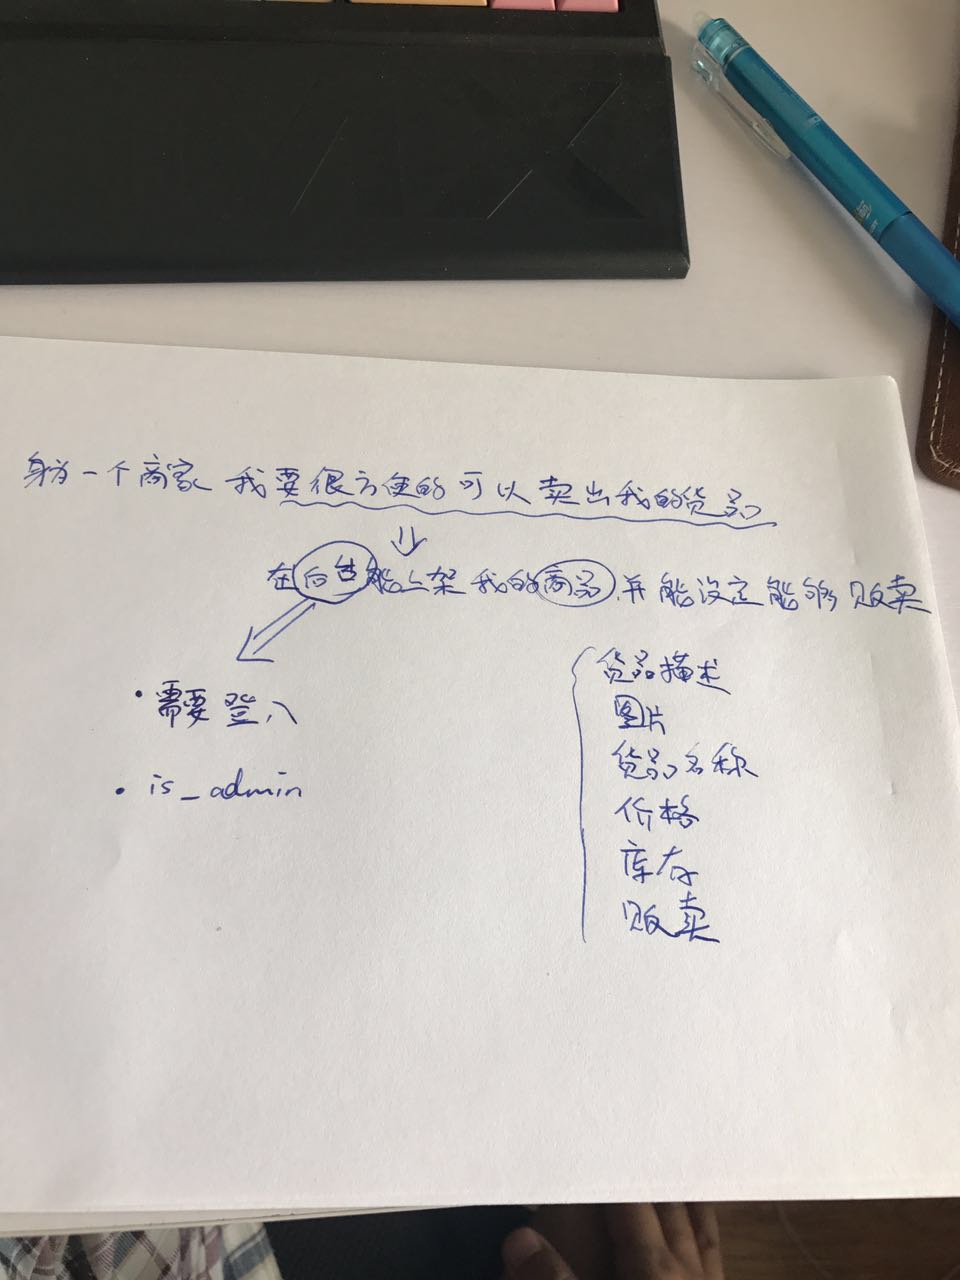 身为一个商家 我要很方便的可以卖出我的货品
在后台能上架 我的商品 并能设定能够贩卖
· 需要登入
· is_admin
货品描述
图片
货品名称
价格
库存
贩卖